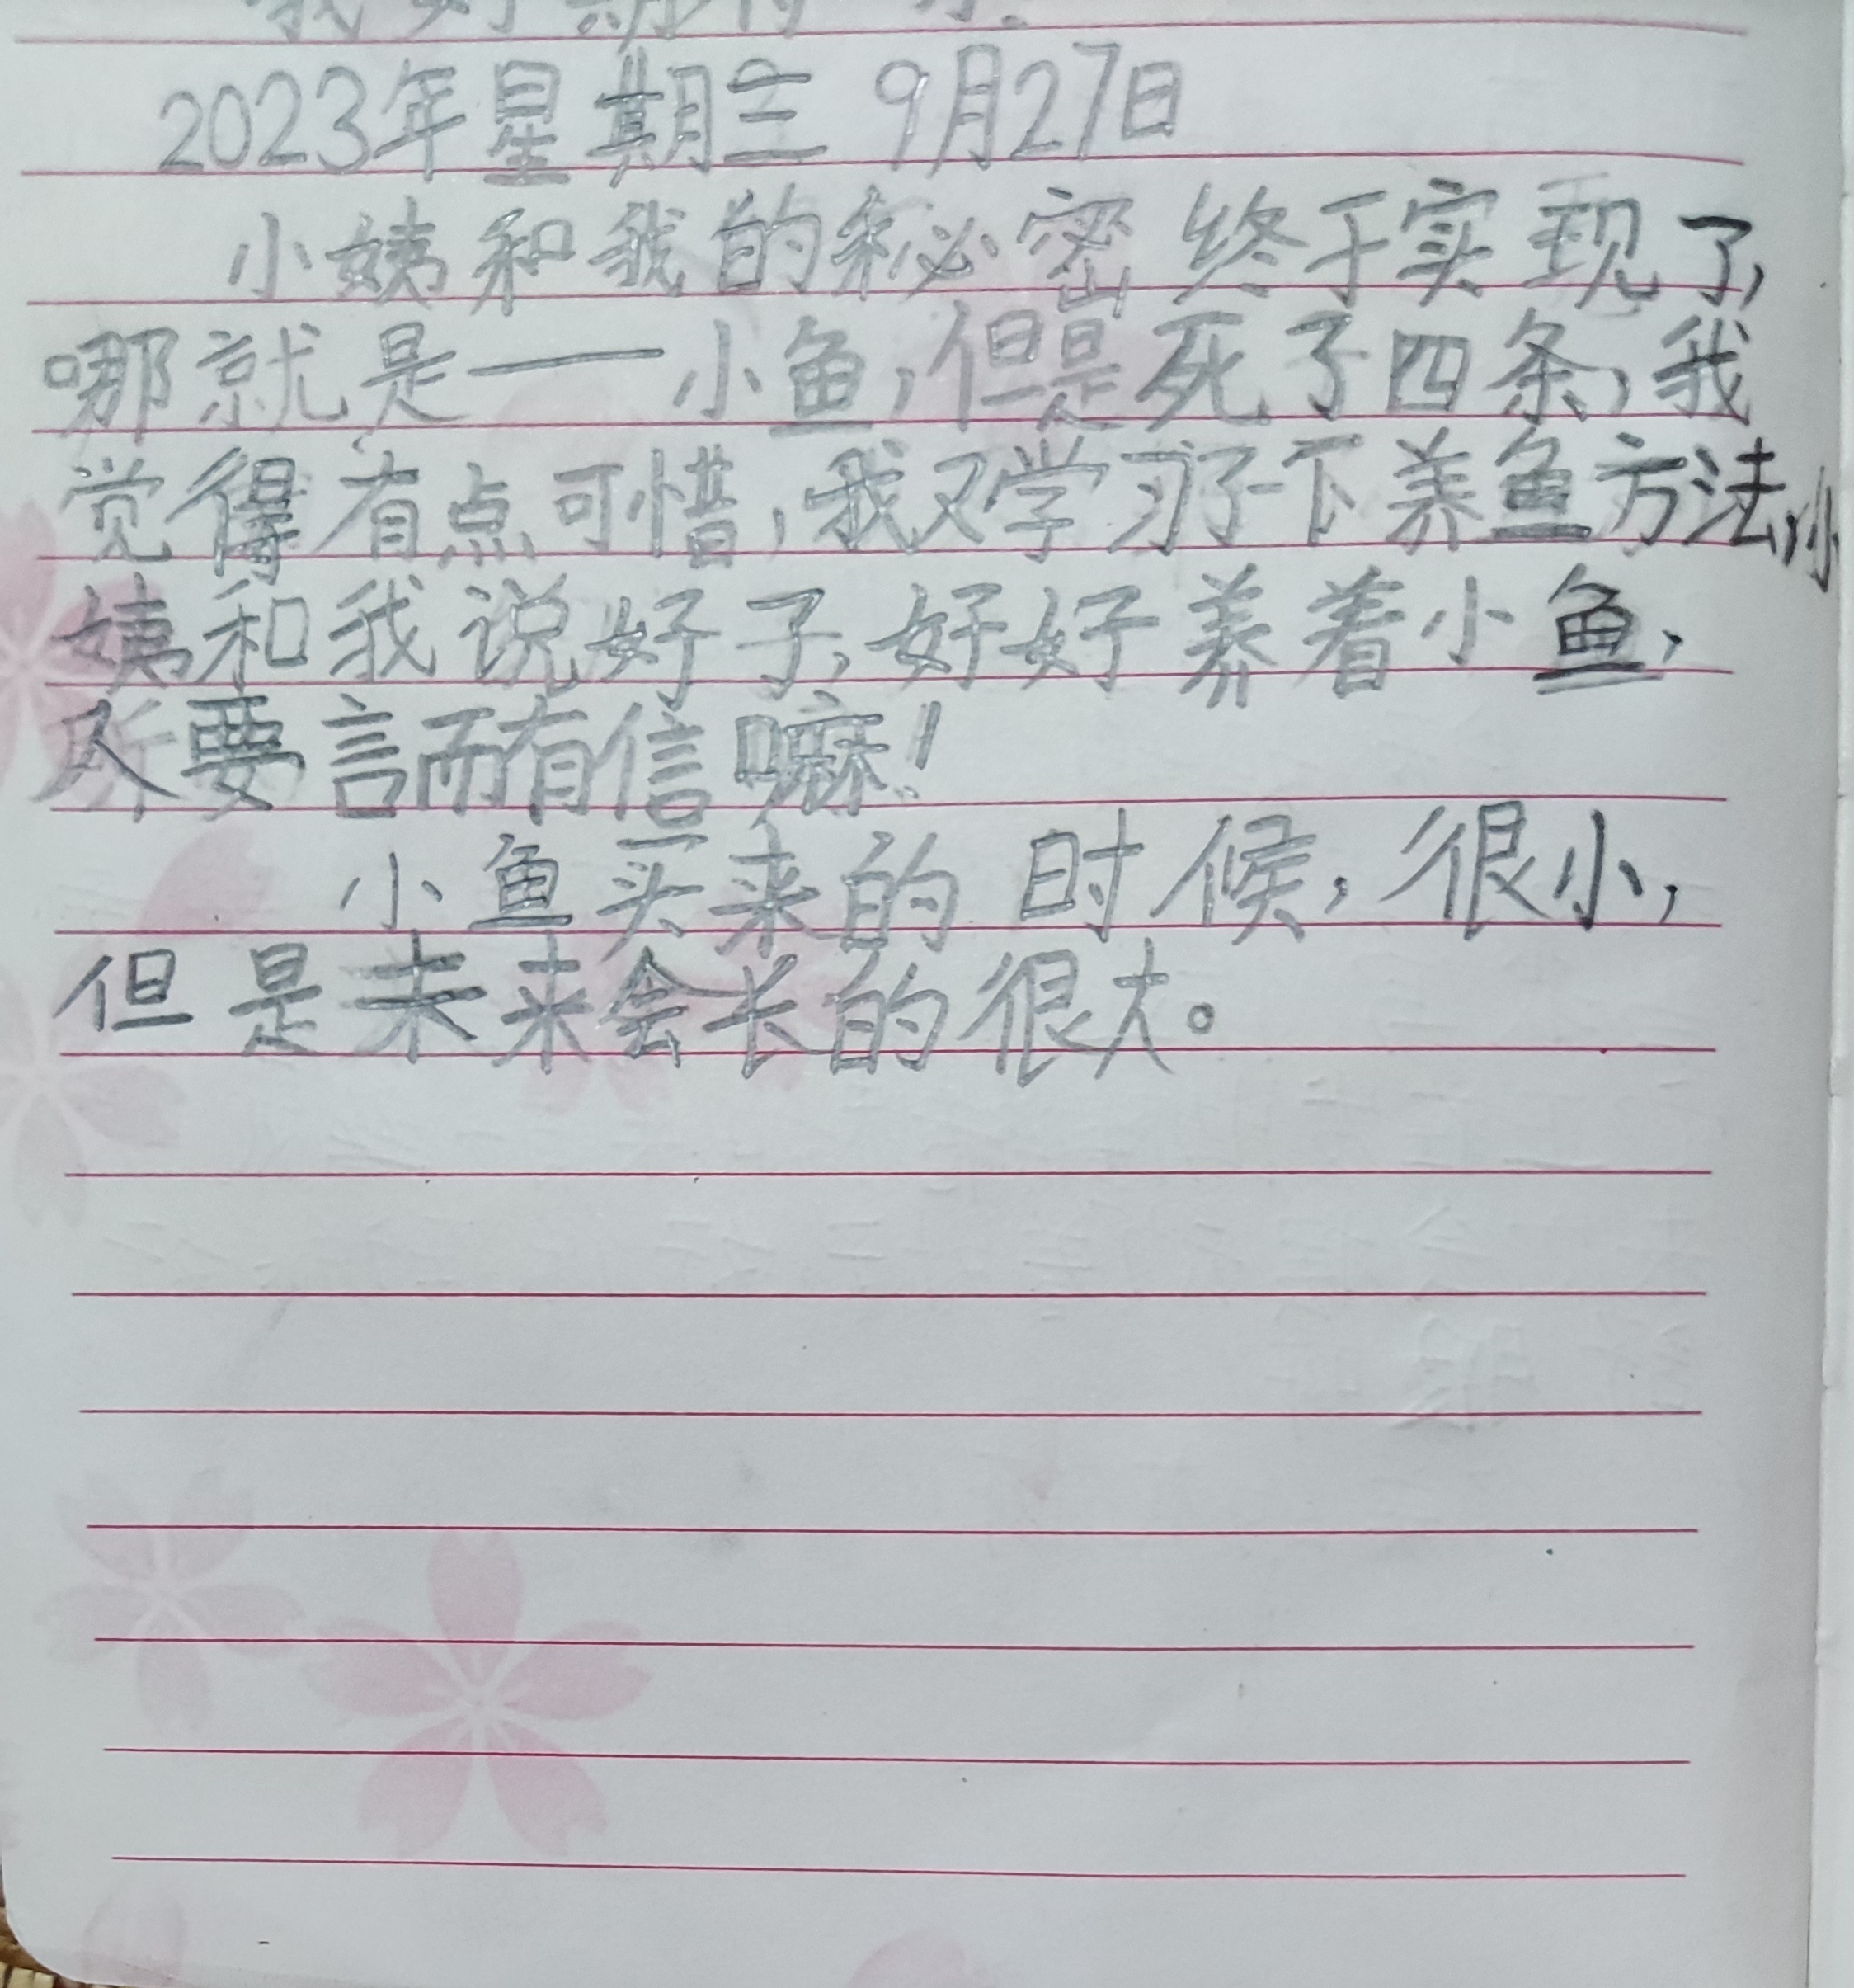 2023年星期三 9月27日
小姨和我的秘密终于实现了,
哪就是——小鱼,但是死了四条,我
觉得有点可惜,我又学习了一下养鱼方法,小
姨和我说好了,好好养着小鱼,
人要言而有信嘛!
小鱼买来的时候,很小,
但是未来会长的很大。